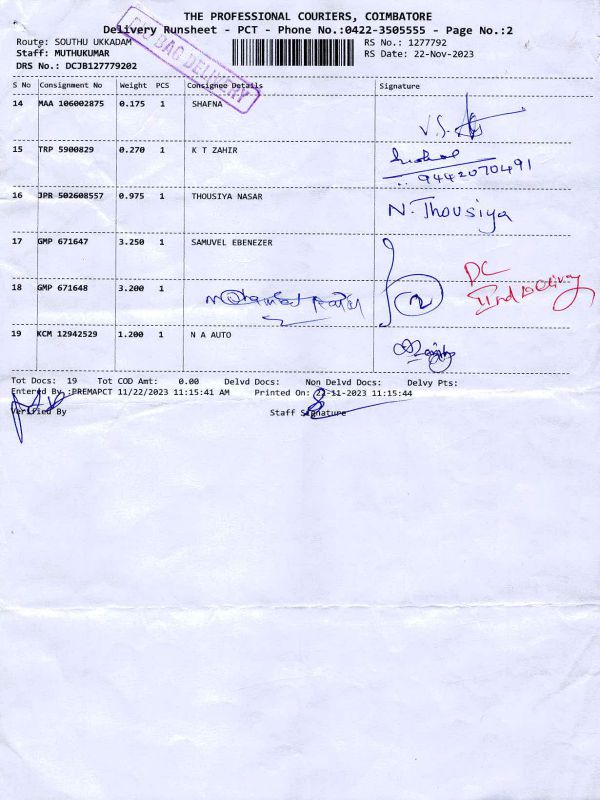 THE PROFESSIONAL COURIERS, COIMBATORE
Delivery Runsheet - PCT - Phone No.:0422-3505555 - Page No.:2
Route: SOUTHU UKKADAM RS No.: 1277792
Staff: MUTHUKUMAR RS Date: 22-Nov-2023
DRS No.: DCJB127779202
BAG DELIVERY
S No Consignment No Weight PCS Consignee Details Signature
14 MAA 106002875 0.175 1 SHAFNA
V.S.
15 TRP 5900829 0.270 1 K T ZAHIR
9442070491
16 JPR 502608557 0.975 1 THOUSIYA NASAR N. Thousiya
17 GMP 671647 3.250 1 SAMUVEL EBENEZER
DC
IInd Delivery
18 GMP 671648 3.200 1 2
19 KCM 12942529 1.200 1 N A AUTO
Tot Docs: 19 Tot COD Amt: 0.00 Delvd Docs: Non Delvd Docs: Delvy Pts:
Entered By :PREMAPCT 11/22/2023 11:15:41 AM Printed On: 22-11-2023 11:15:44
Verified By Staff Signature